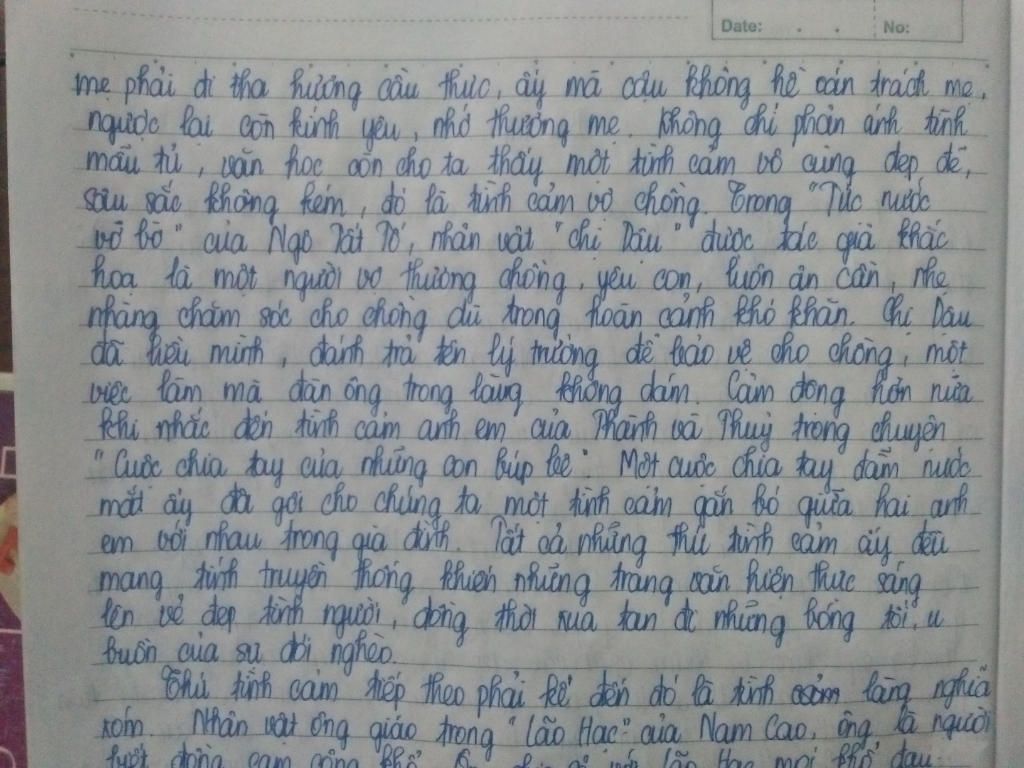 Date: . . No:
mẹ phải đi tha hương cầu thực, ấy mà cậu không hề oán trách mẹ,
ngược lại còn kính yêu, nhớ thương mẹ. Không chỉ phản ánh tình
mẫu tử, văn học còn cho ta thấy một tình cảm vô cùng đẹp đẽ,
sâu sắc không kém, đó là tình cảm vợ chồng. Trong "Tức nước
vỡ bờ" của Ngô Tất Tố, nhân vật "chị Dậu" được tác giả khắc
họa là một người vợ thương chồng, yêu con, luôn ân cần, nhẹ
nhàng chăm sóc cho chồng dù trong hoàn cảnh khó khăn. Chị Dậu
đã liều mình, đánh trả tên lý trưởng để bảo vệ cho chồng, một
việc làm mà đàn ông trong làng không dám. Cảm động hơn nữa
khi nhắc đến tình cảm anh em của Thành và Thuỷ trong chuyện
"Cuộc chia tay của những con búp bê". Một cuộc chia tay đẫm nước
mắt ấy đã gợi cho chúng ta một tình cảm gắn bó giữa hai anh
em với nhau trong gia đình. Tất cả những thứ tình cảm ấy đều
mang tính truyền thống khiến những trang văn hiện thực sáng
lên vẻ đẹp tình người, đồng thời xua tan đi những bóng tối, u
buồn của sự đói nghèo.
Thứ tình cảm tiếp theo phải kể đến đó là tình cảm làng nghĩa
xóm. Nhân vật ông giáo trong "Lão Hạc" của Nam Cao, ông là người
lão Hạc mọi khổ đau.